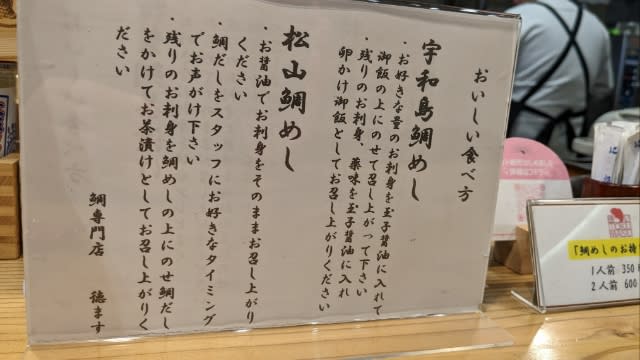 おいしい食べ方
宇和島鯛めし
・お好きな量のお刺身を玉子醤油に入れて
御飯の上にのせて召し上がって下さい
・残りのお刺身、薬味を玉子醤油に入れ
卵かけ御飯としてお召し上がりください
松山鯛めし
・お醤油でお刺身をそのままお召し上がり
ください
・鯛だしをスタッフにお好きなタイミング
でお声がけ下さい
・残りのお刺身を鯛めしの上にのせ鯛だし
をかけてお茶漬けとしてお召し上がりく
ださい
鯛専門店 徳ます
「鯛めしのお持
1人前 350
2人前 600